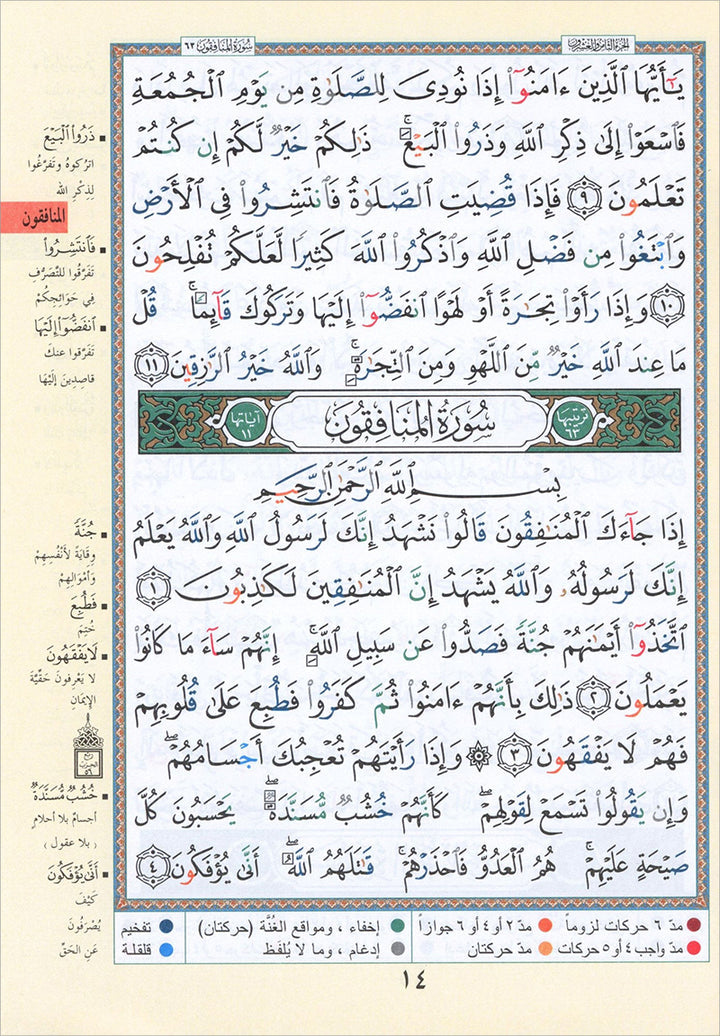 سُورَةُ المُنَافِقُونَ ٦٣
الجُزءُ الثَّامِنُ وَالعِشرُونَ
يَٰٓأَيُّهَا ٱلَّذِينَ ءَامَنُوٓا۟ إِذَا نُودِىَ لِلصَّلَوٰةِ مِن يَوْمِ ٱلْجُمُعَةِ
فَٱسْعَوْا۟ إِلَىٰ ذِكْرِ ٱللَّهِ وَذَرُوا۟ ٱلْبَيْعَ ۚ ذَٰلِكُمْ خَيْرٌ لَّكُمْ إِن كُنتُمْ
تَعْلَمُونَ ٩ فَإِذَا قُضِيَتِ ٱلصَّلَوٰةُ فَٱنتَشِرُوا۟ فِى ٱلْأَرْضِ
وَٱبْتَغُوا۟ مِن فَضْلِ ٱللَّهِ وَٱذْكُرُوا۟ ٱللَّهَ كَثِيرًا لَّعَلَّكُمْ تُفْلِحُونَ
١٠ وَإِذَا رَأَوْا۟ تِجَٰرَةً أَوْ لَهْوًا ٱنفَضُّوٓا۟ إِلَيْهَا وَتَرَكُوكَ قَآئِمًا ۚ قُلْ
مَا عِندَ ٱللَّهِ خَيْرٌ مِّنَ ٱللَّهْوِ وَمِنَ ٱلتِّجَٰرَةِ ۚ وَٱللَّهُ خَيْرُ ٱلرَّٰزِقِينَ ١١
ترتيبها ٦٣
سُورَةُ المُنَافِقُونَ
آياتها ١١
بِسْمِ ٱللَّهِ ٱلرَّحْمَٰنِ ٱلرَّحِيمِ
إِذَا جَآءَكَ ٱلْمُنَٰفِقُونَ قَالُوا۟ نَشْهَدُ إِنَّكَ لَرَسُولُ ٱللَّهِ وَٱللَّهُ يَعْلَمُ
إِنَّكَ لَرَسُولُهُۥ وَٱللَّهُ يَشْهَدُ إِنَّ ٱلْمُنَٰفِقِينَ لَكَٰذِبُونَ ١
ٱتَّخَذُوٓا۟ أَيْمَٰنَهُمْ جُنَّةً فَصَدُّوا۟ عَن سَبِيلِ ٱللَّهِ ۚ إِنَّهُمْ سَآءَ مَا كَانُوا۟
يَعْمَلُونَ ٢ ذَٰلِكَ بِأَنَّهُمْ ءَامَنُوا۟ ثُمَّ كَفَرُوا۟ فَطُبِعَ عَلَىٰ قُلُوبِهِمْ
فَهُمْ لَا يَفْقَهُونَ ٣ ۞ وَإِذَا رَأَيْتَهُمْ تُعْجِبُكَ أَجْسَامُهُمْ ۖ
وَإِن يَقُولُوا۟ تَسْمَعْ لِقَوْلِهِمْ ۖ كَأَنَّهُمْ خُشُبٌ مُّسَنَّدَةٌ ۖ يَحْسَبُونَ كُلَّ
صَيْحَةٍ عَلَيْهِمْ ۚ هُمُ ٱلْعَدُوُّ فَٱحْذَرْهُمْ ۚ قَٰتَلَهُمُ ٱللَّهُ ۖ أَنَّىٰ يُؤْفَكُونَ ٤
ذَرُوا البَيْعَ
اتركوهُ وتَفَرَّغُوا
لِذِكْرِ الله
المنافقون
فَٱنتَشِرُوا
تَفَرَّقُوا للتَّصَرُّفِ
فِي حَوَائِجِكُمْ
انفَضُّوا إِلَيْهَا
تَفَرَّقوا عنكَ
قاصِدِينَ إِلَيْهَا
جُنَّةً
وِقَايَةً لأَنْفُسِهِمْ
وَأمْوَالِهِمْ
فَطُبِعَ
خُتِمَ
لَا يَفْقَهُونَ
لا يَعْرِفونَ حَقِّيَّةَ
الإيمَانِ
ربع
الحزب
٥٦
خُشُبٌ مُّسَنَّدَةٌ
أجسامٌ بلا أحلامٍ
( بلا عقول )
أَنَّى يُؤْفَكُونَ
كَيْفَ
يُصْرَفُونَ
عَنِ الحَقِّ
مدّ ٦ حركات لزوماً
مدّ ٢ أو ٤ أو ٦ جوازاً
مدّ واجب ٤ أو ٥ حركات
مدّ حركتان
إخفاء ، ومواقع الغُنَّة (حركتان)
إدغام ، وما لا يُلفَظ
تفخيم
قلقلة
١٤